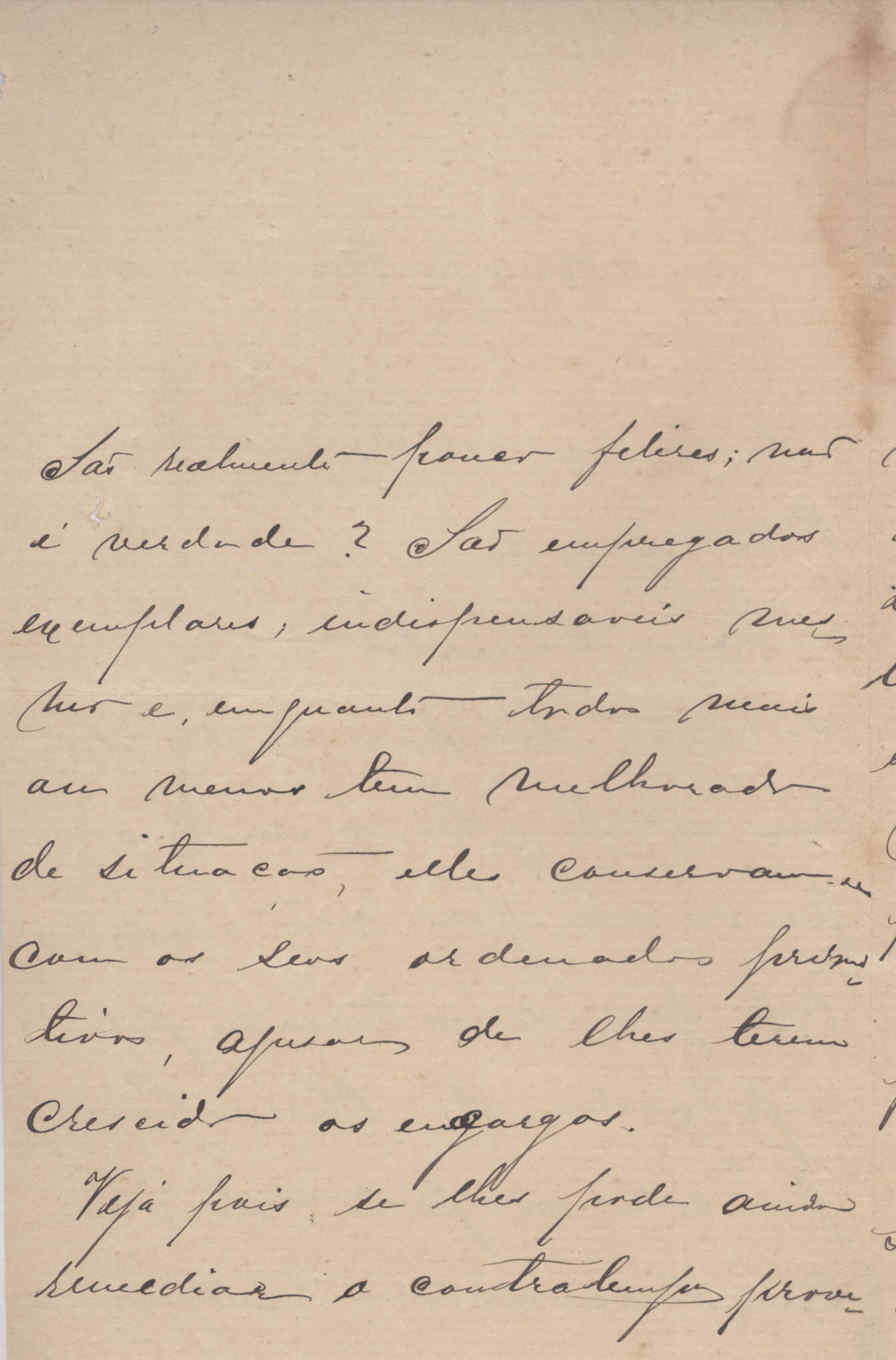 São realmente pouco felizes; não
é verdade? São empregados
exemplares; indispensaveis mes-
mo e, emquanto todos mais
ou menos tem melhorado
de situação, elles conservam-se
com os seus ordenados primi-
tivos, apesar de lhes terem
crescido os encargos.
Veja pois se lhes pode ainda
remediar o contratempo prove-